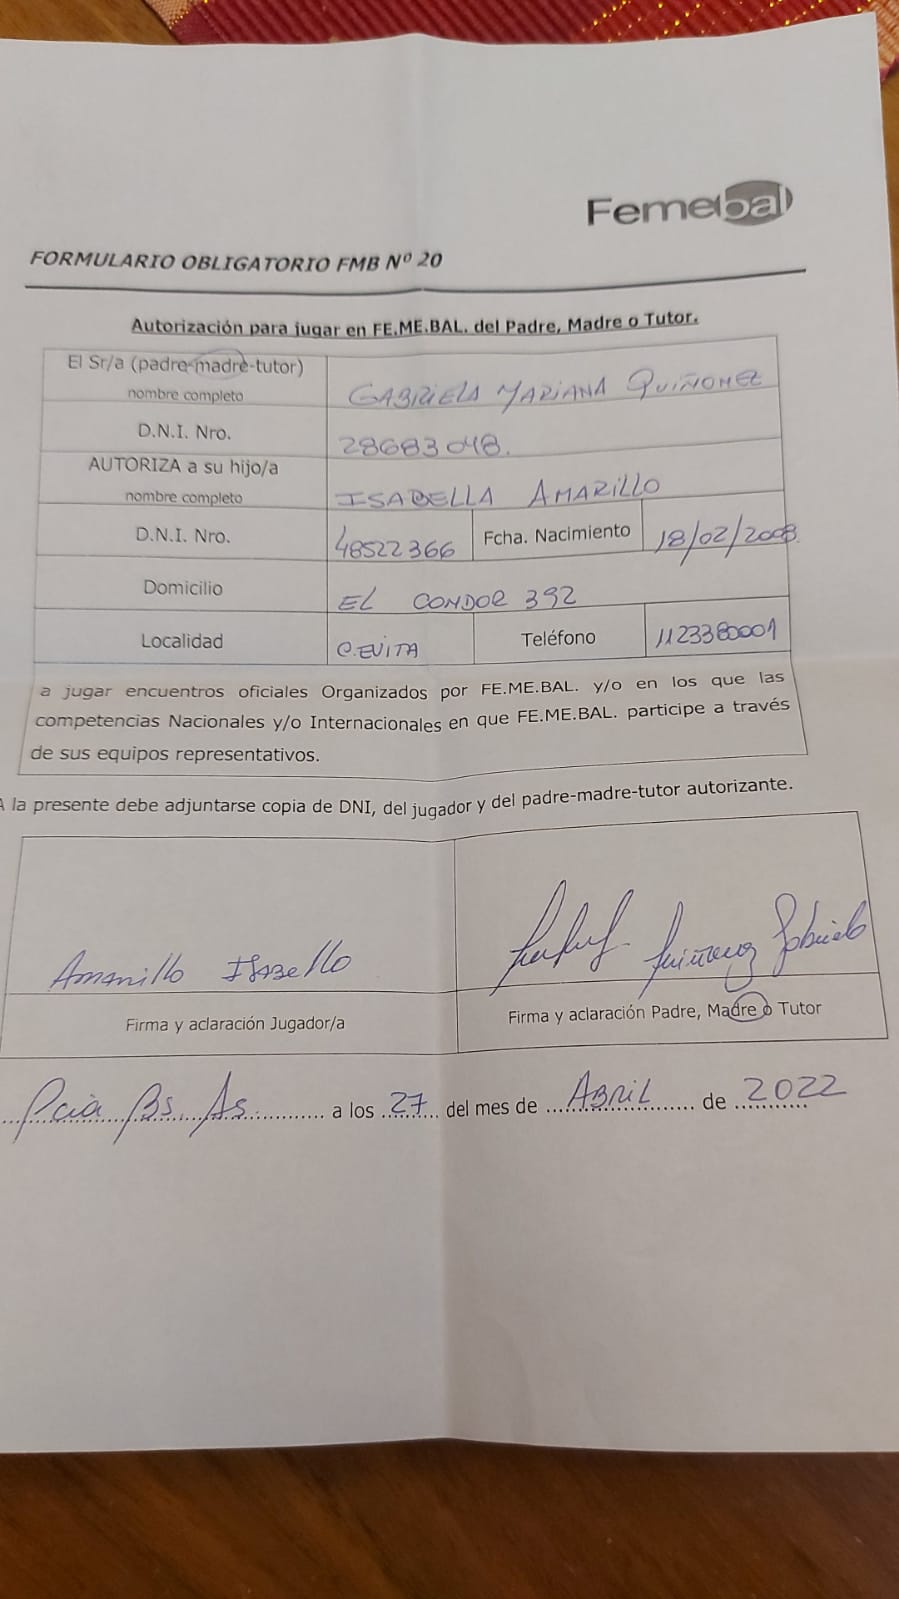 Femebal
FORMULARIO OBLIGATORIO FMB Nº 20
Autorización para jugar en FE.ME.BAL. del Padre, Madre o Tutor.
El Sr/a (padre-madre-tutor)
nombre completo
GABRIELA MARIANA QUIÑONEZ
D.N.I. Nro.
28683048.
AUTORIZA a su hijo/a
nombre completo
ISABELLA AMARILLO
D.N.I. Nro.
48522366
Fcha. Nacimiento
18/02/2008.
Domicilio
EL CONDOR 392
Localidad
C.EVITA
Teléfono
1123380001
a jugar encuentros oficiales Organizados por FE.ME.BAL. y/o en los que las
competencias Nacionales y/o Internacionales en que FE.ME.BAL. participe a través
de sus equipos representativos.
A la presente debe adjuntarse copia de DNI, del jugador y del padre-madre-tutor autorizante.
Amarillo Isabella
Quiñonez Gabriela
Firma y aclaración Jugador/a
Firma y aclaración Padre, Madre o Tutor
Pcia Bs. As. a los 27 del mes de ABRIL de 2022